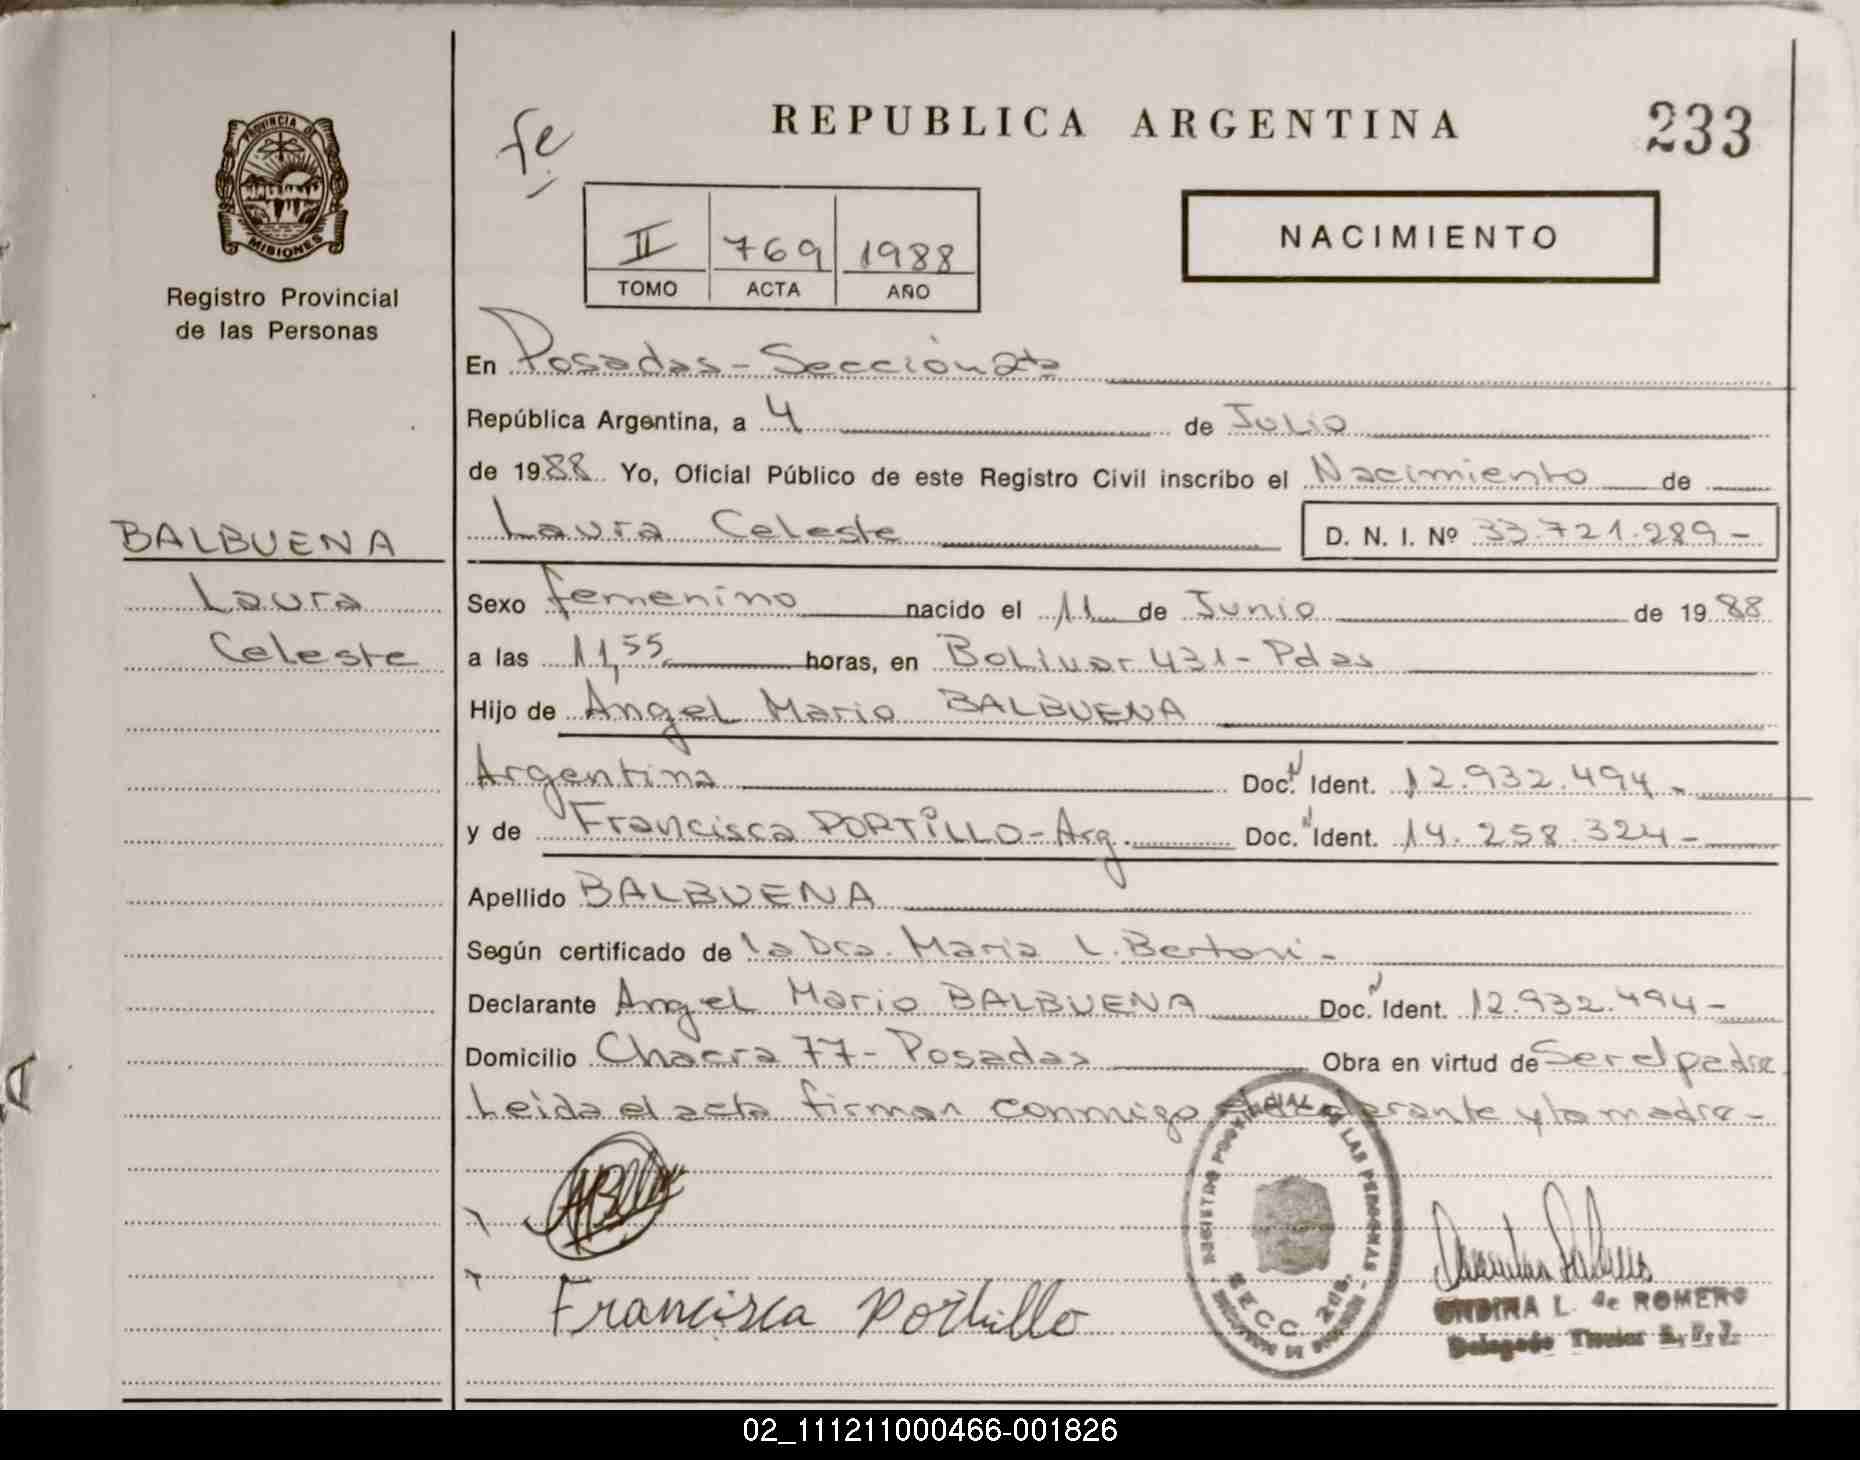 PROVINCIA DE
MISIONES
Registro Provincial
de las Personas
fe
REPUBLICA ARGENTINA
233
II 769 1988
TOMO ACTA AÑO
NACIMIENTO
En Posadas - Sección 2da
República Argentina, a 4 de Julio
de 1988 Yo, Oficial Público de este Registro Civil inscribo el Nacimiento de
BALBUENA
Laura Celeste D. N. I. Nº 33.721.289-
Laura
Celeste
Sexo femenino nacido el 11 de Junio de 1988
a las 11,55 horas, en Bolivar 431 - Pdas
Hijo de Angel Mario BALBUENA
Argentina Doc. Ident. 12.932.494-
y de Francisca PORTiLLO - Arg. Doc. Ident. 14.258.324-
Apellido BALBUENA
Según certificado de la Dra. Maria L. Bertoni-
Declarante Angel Mario BALBUENA Doc. Ident. 12.932.494-
Domicilio Chacra 77 - Posadas Obra en virtud de Ser el padre
Leida el acta firman conmigo el declarante y la madre-
Francisca Portillo
REGISTRO PROVINCIAL DE LAS PERSONAS
SECC. 2da.
MISIONES
ONDINA L. de ROMERO
Delegado Titular
02_111211000466-001826